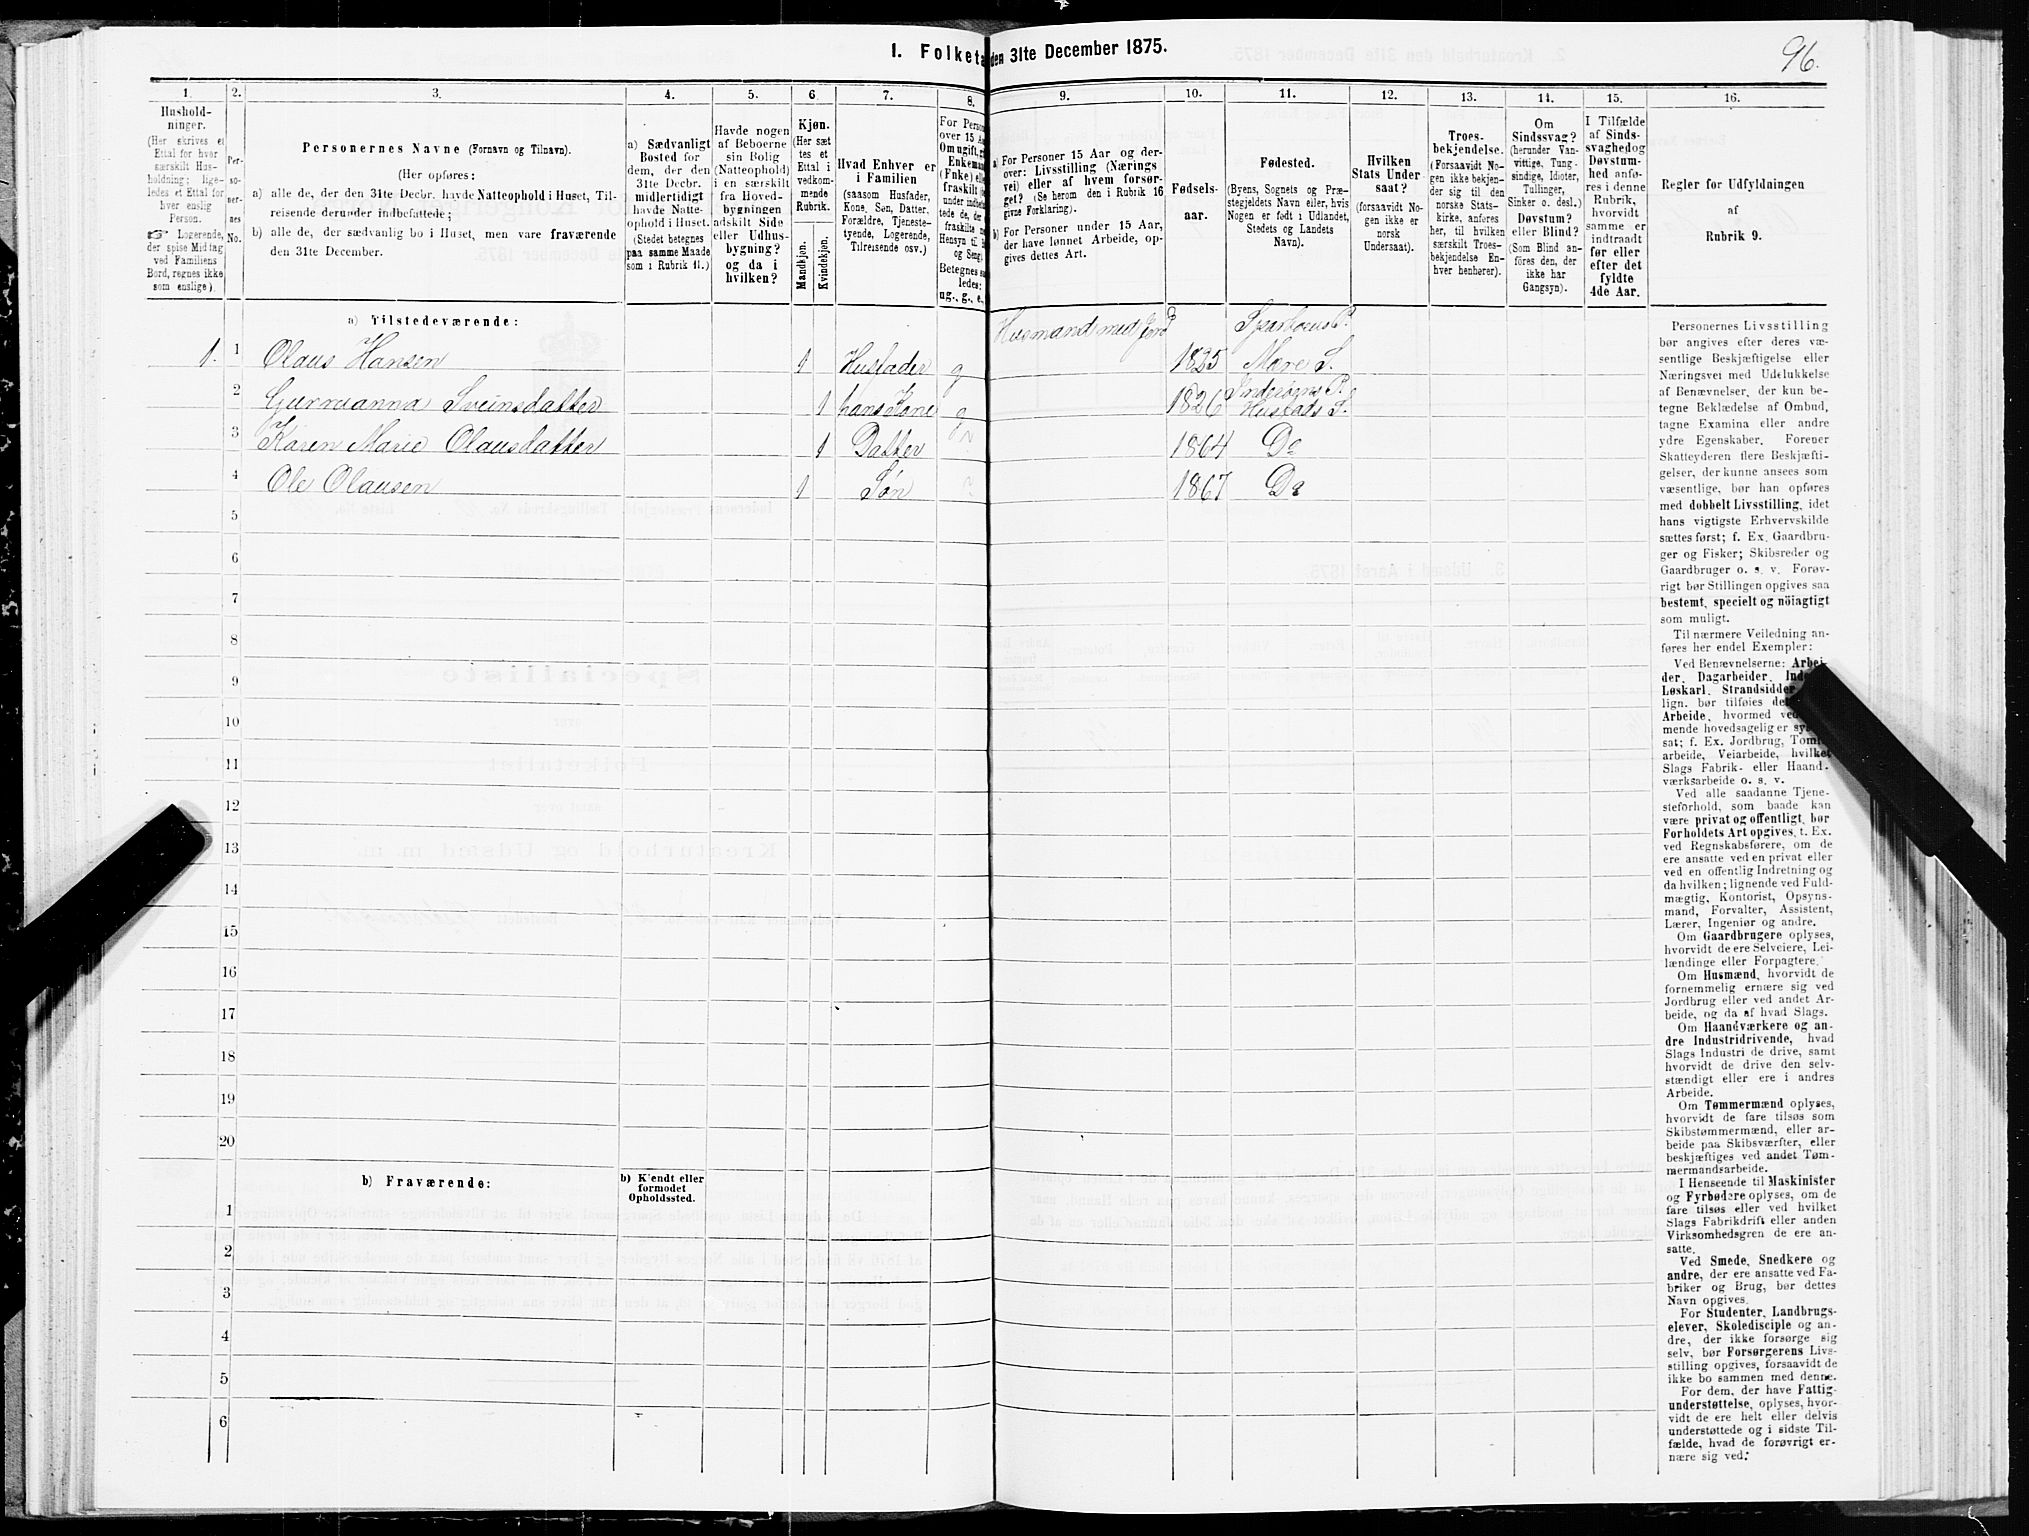 I. Folketa den 31te December 1875.
96.
1. 2. 3. 4. 5. 6. 7. 8. 9. 10. 11. 12. 13. 14. 15. 16.
Hushold-
ninger.
(Her skrives et
Ettal for hver
særskilt Hus-
holdning; lige-
ledes et Ettal for
hver enslig
Person.
☞ Logerende,
der spise Middag
ved Familiens
Bord, regnes ikke
som enslige).
Per-
so-
ner-
nes
No.
Personernes Navne (Fornavn og Tilnavn).
(Her opføres:
a) alle de, der den 31te Decbr. havde Natteophold i Huset, Til-
reisende derunder indbefattede;
b) alle de, der sædvanlig bo i Huset, men vare fraværende
den 31te December.
a) Sædvanligt
Bosted for
dem, der den
31te Decbr.
midlertidigt
havde Natte-
ophold i Huset.
(Stedet betegnes
paa samme Maade
som i Rubrik 11.)
Havde nogen
af Beboerne
sin Bolig
(Natteophold)
i en særskilt
fra Hoved-
bygningen
adskilt Side
eller Udhus-
bygning?
og da i
hvilken?
Kjøn.
(Her sæt-
tes et
Ettal i
vedkom-
mende
Rubrik.
Mandkjøn.
Kvindekjøn.
Hvad Enhver er
i Familien
(saasom Husfader,
Kone, Søn, Datter,
Forældre, Tjeneste-
tyende, Logerende,
Tilreisende osv.)
For Person
over 15 Aar
Om ugift, g
Enkeman
(Enke) elle
fraskilt
under indbef
tede de, der
fraskilte
Hensyn til
og Seng.
Betegnes sa
ledes:
ug., g., e.,
a) For Personer 15 Aar og der-
over: Livsstilling (Nærings
vei) eller af hvem forsør-
get? (Se herom den i Rubrik 16
givne Forklaring).
b) For Personer under 15 Aar,
der have lønnet Arbeide, op-
gives dettes Art.
Fødsels-
aar.
Fødested.
(Byens, Sognets og Præ-
stegjeldets Navn eller, hvis
Nogen er født i Udlandet,
Stedets og Landets
Navn).
Hvilken
Stats Under
saat?
(forsaavidt No-
gen ikke er
norsk
Undersaat).
Troes-
bekjendelse.
(Forsaavidt No-
gen ikke bekjen-
der sig til den
norske Stats-
kirke, anføres
her, til hvilken
særskilt Troes-
bekjendelse En-
hver henhører).
Om
Sindssvag?
(herunder Van-
vittige, Tung-
sindige, Idioter,
Tullinger,
Sinker o. desl.)
Døvstum?
eller Blind?
(Som Blind an-
føres den, der
ikke har
Gangsyn).
I Tilfælde
af Sinds-
svaghed og
Døvstum-
hed anfø-
res i denne
Rubrik,
hvorvidt
samme er
indtraadt
før eller
efter det
fyldte
4de Aar.
Regler for Udfyldningen
af
Rubrik 9.
a) Tilstedeværende:
1. 1 Olaus Hansen 1 Husfader g Husmand med Jord 1825 Sparboens P. Mære S.
2 Gurruanna Sveinsdatter 1 hans Kone g 1826 Inderøens P. Hustads S.
3 Karen Marie Olausdatter 1 Datter 1864 Do
4 Ole Olausen 1 Søn 1867 Do
5
6
7
8
9
10
11
12
13
14
15
16
17
18
19
20
b) Fraværende:
b) Kjendt eller
formodet
Opholdssted.
1
2
3
4
5
6
Personernes Livsstilling
bør angives efter deres væ-
sentlige Beskjæftigelse eller
Næringsvei med Udelukkelse
af Benævnelser, der kun be-
tegne Beklædelse af Ombud,
tagne Examina eller andre
ydre Egenskaber. Forener
Skatteyderen flere Beskjæfti-
gelser, der kunne ansees som
væsentlige, bør han opføres
med dobbelt Livsstilling, idet
hans vigtigste Erhvervskilde
sættes først; f. Ex. Gaardbru-
ger og Fisker; Skibsreder og
Gaardbruger o. s. v. Forøv-
rigt bør Stillingen opgives saa
bestemt, specielt og nöiagtigt
som muligt.
Til nærmere Veiledning an-
føres her endel Exempler:
Ved Benævnelserne: Arbei-
der, Dagarbeider, Inde
Løskarl, Strandsidder
lign. bør tilføies de
Arbeide, hvormed ved
mende hovedsagelig er sys
sat; f. Ex. Jordbrug, Tøm
arbeide, Veiarbeide, hvilket
Slags Fabrik- eller Haand-
værksarbeide o. s. v.
Ved alle saadanne Tjene-
steforhold, som baade kan
være privat og offentligt, bør
Forholdets Art opgives, t. Ex.
ved Regnskabsførere, om de
ere ansatte ved en privat eller
ved en offentlig Indretning og
da hvilken; lignende ved Fuld-
mægtig, Kontorist, Opsyns-
mand, Forvalter, Assistent,
Lærer, Ingeniør og andre.
Om Gaardbrugere oplyses,
hvorvidt de ere Selveiere, Lei-
lændinge eller Forpagtere.
Om Husmænd, hvorvidt de
fornemmelig ernære sig ved
Jordbrug eller ved andet Ar-
beide, og da af hvad Slags.
Om Haandværkere og an-
dre Industridrivende, hvad
Slags Industri de drive, samt
hvorvidt de drive den selv-
stændigt eller ere i andres
Arbeide.
Om Tømmermænd oplyses,
hvorvidt de fare tilsøs som
Skibstømmermænd, eller ar-
beide paa Skibsværfter, eller
beskjæftiges ved andet Tøm-
mermandsarbeide.
I Henseende til Maskinister
og Fyrbødere oplyses, om de
fare tilsøs eller ved hvilket
Slags Fabrikdrift eller anden
Virksomhedsgren de ere an-
satte.
Ved Smede, Snedkere og
andre, der ere ansatte ved Fa-
briker og Brug, bør dettes
Navn opgives.
For Studenter, Landbrugs-
elever, Skoledisciple og an-
dre, der ikke forsørge sig
selv, bør Forsørgerens Livs-
stilling opgives, forsaavidt de
ikke bo sammen med denne.
For dem, der have Fattig-
understøttelse, oplyses, hvor-
vidt de ere helt eller delvis
understøttede og i sidste Til-
fælde, hvad de forøvrigt er-
nære sig ved.